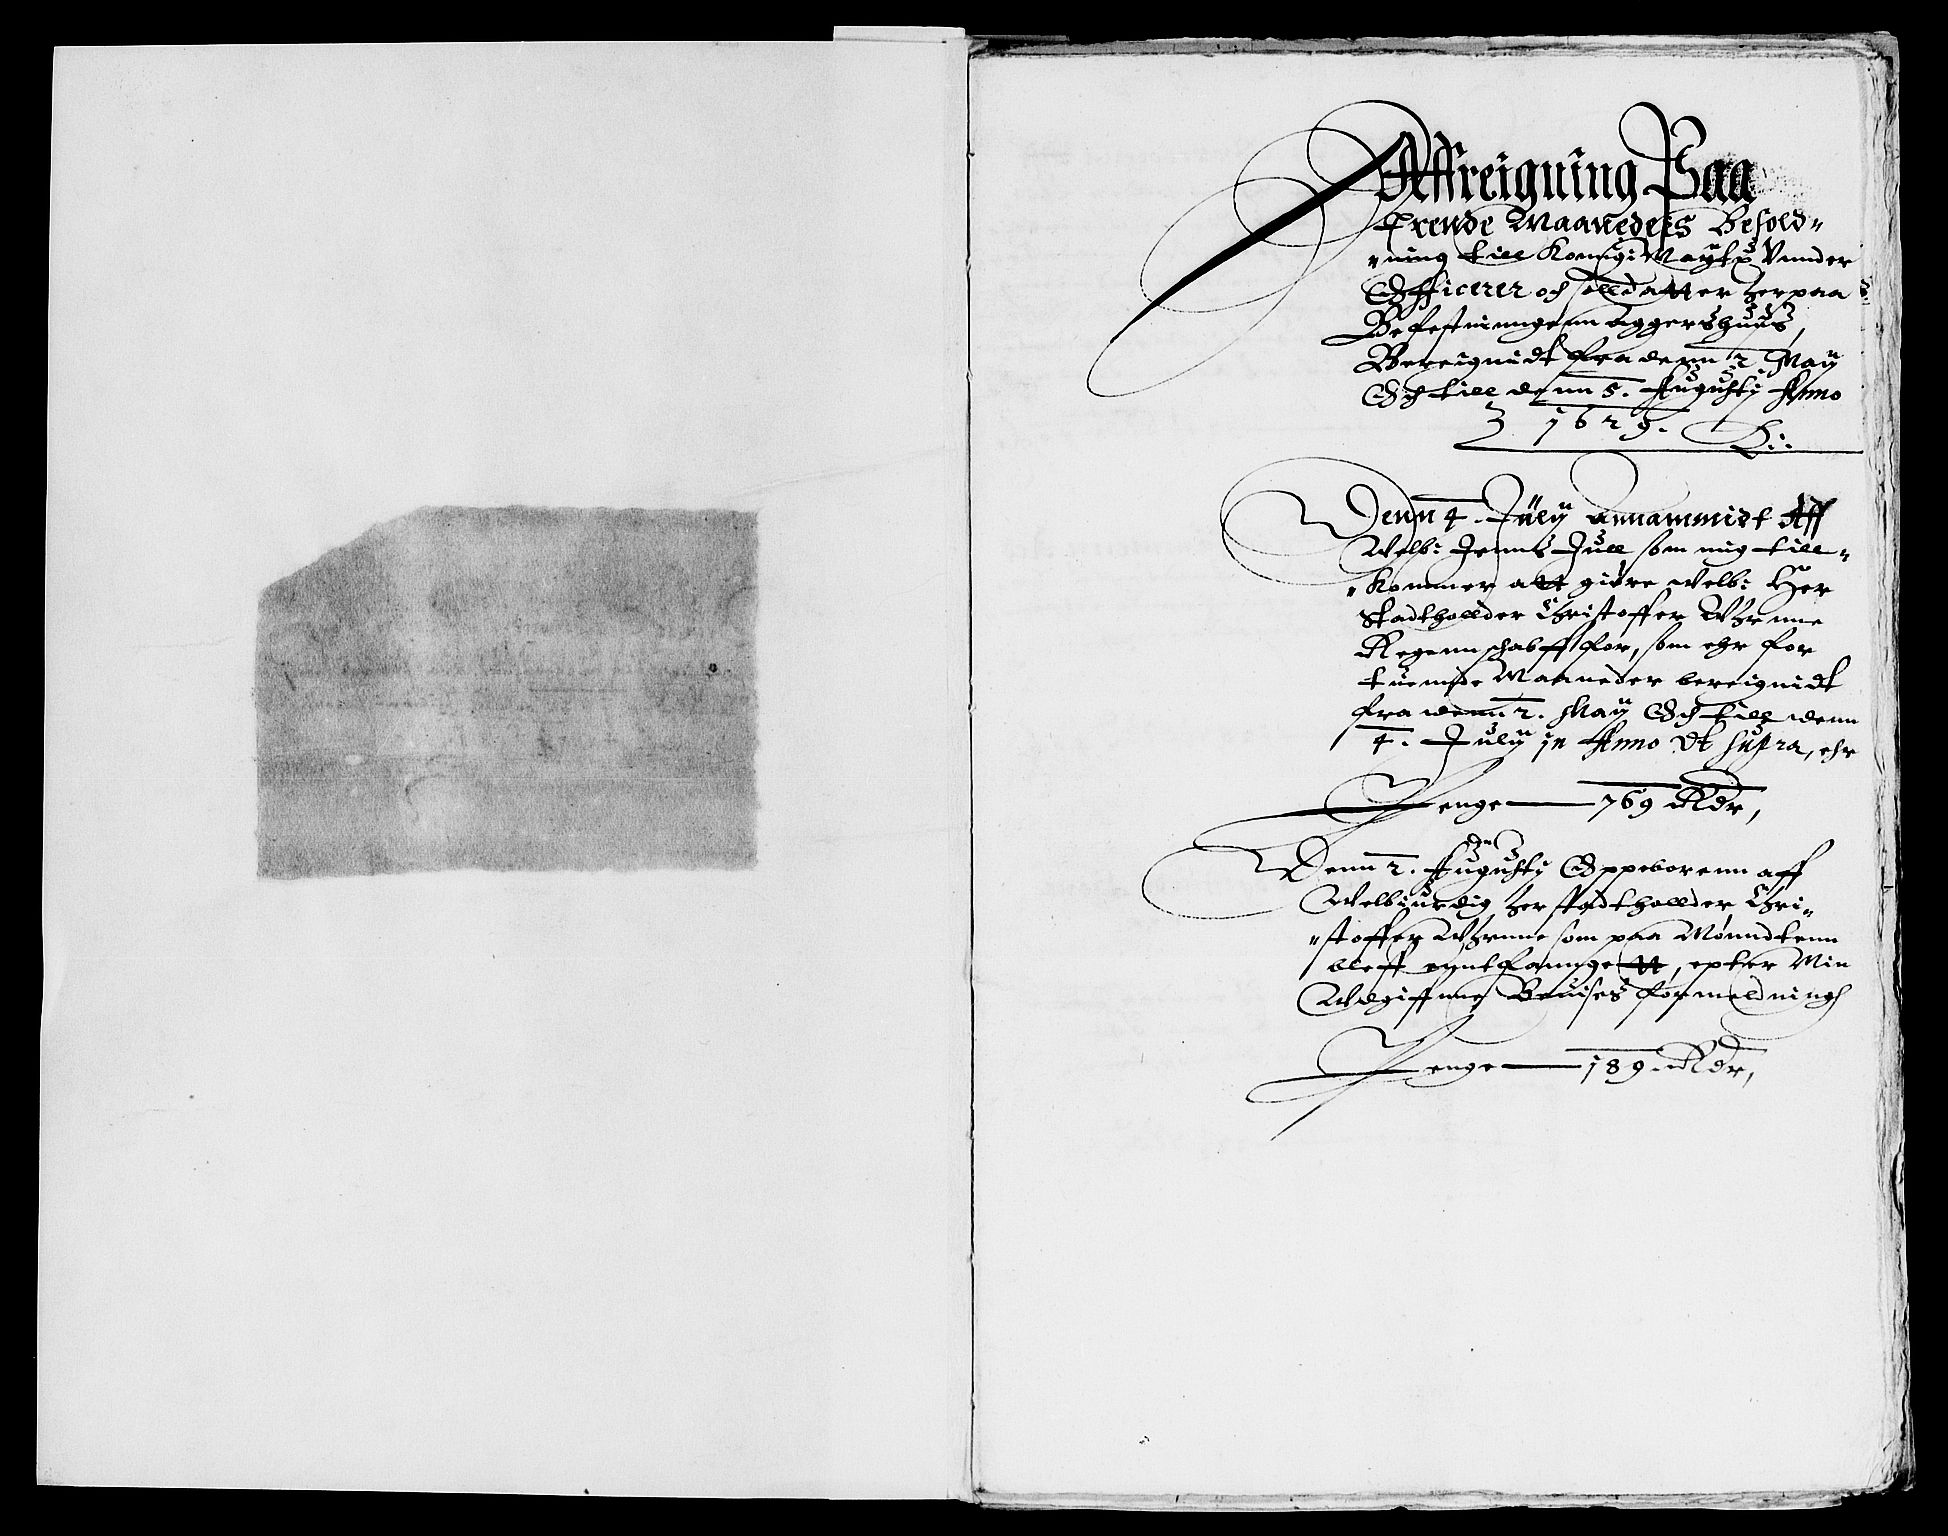 Affreigning Paa
trende Maanederß Besold=
=ning till Konnig: Maytz Vnnder
Officerer och solldatter her paa
Befestninngenn Aggershuuß,
Bereignidt fra denn 2. May
Och till denn 5. Augustij Anno
1629.
Denn 4. Julij Annammidt Aff
Welb: Jenns Juell som mig till=
=kommer att giøre welb: Her
Stadthollder Christoffer Vhrnne
Regennschabff for, som ehr for
tuennde Maaneder bereignidt
fra denn 2. May Och till denn
4. Julij in Anno Vt supra, ehr
Penge — 769 Rdr,
Denn 2. Augustij Oppeborenn aff
Welbiurdig her Stadthollder Chri=
=stoffer Vhrnne som paa Mønndtenn
bleff anntfanngett, epter Min
Wdgiffnne Beuises formeldningh
Penge — 189. Rdr,